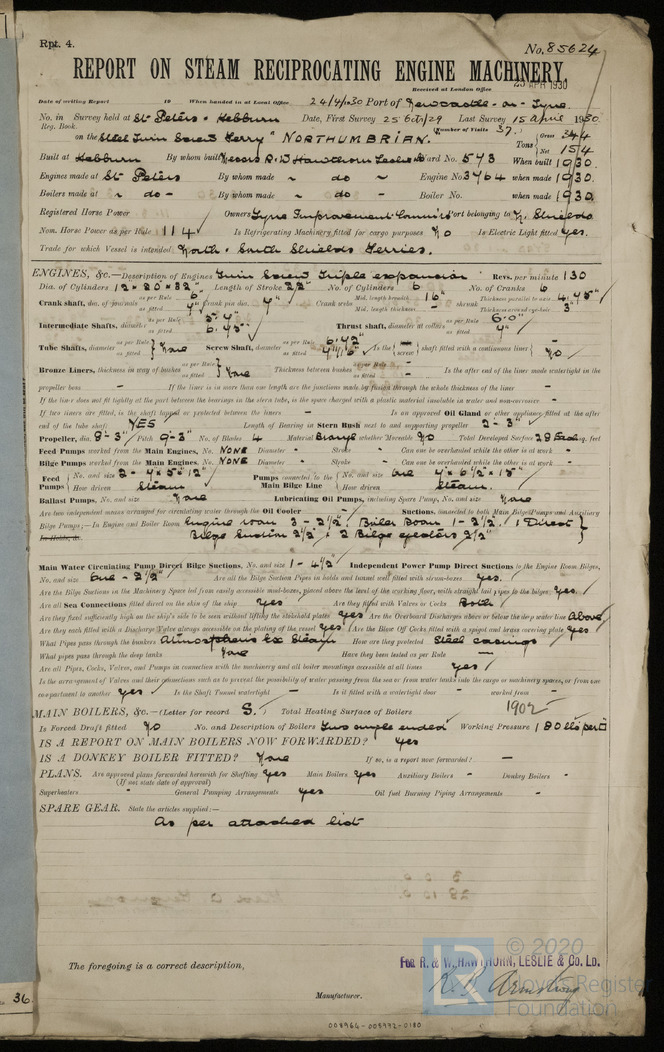 Rpt. 4. No. 85624
REPORT ON STEAM RECIPROCATING ENGINE MACHINERY.
Received at London Office APR 1930
Date of writing Report 19 When handed in at Local Office 24/4/1930 Port of Newcastle-on-Tyne.
No. in Survey held at St Peters & Hebburn Date, First Survey 25 Octr/29 Last Survey 15 April 1930.
Reg. Book. (Number of Visits 37.)
on the Steel Twin Screw Ferry "NORTHUMBRIAN. Tons { Gross 344 Net 154
Built at Hebburn By whom built Messrs R. W Hawthorn Leslie & Co Yard No. 573 When built 1930.
Engines made at St Peters By whom made " do " Engine No. 3764 when made 1930.
Boilers made at " do " By whom made " do " Boiler No. when made 1930
Registered Horse Power Owners Tyne Improvement Commrs Port belonging to N. Shields
Nom. Horse Power as per Rule 114 Is Refrigerating Machinery fitted for cargo purposes No Is Electric Light fitted yes.
Trade for which Vessel is intended North & South Shields Ferries.
ENGINES, &c.—Description of Engines Twin Screw Triple expansion Revs. per minute 130
Dia. of Cylinders 12" × 20" × 32" Length of Stroke 22" No. of Cylinders 6 No. of Cranks 6
Crank shaft, dia. of journals as per Rule 6" as fitted 7" Crank pin dia. 7" Crank webs Mid. length breadth 16" Mid. length thickness - shrunk Thickness parallel to axis 4.45" Thickness around eye-hole 3"
Intermediate Shafts, diameter as per Rule 5.7" as fitted 6.45" Thrust shaft, diameter at collars as per Rule 6.0" as fitted 7"
Tube Shafts, diameter as per Rule as fitted } None Screw Shaft, diameter as per Rule 6.42" as fitted Is the { screw } shaft fitted with a continuous liner { No
Bronze Liners, thickness in way of bushes as per Rule as fitted } None Thickness between bushes as per Rule - as fitted - Is the after end of the liner made watertight in the
propeller boss - If the liner is in more than one length are the junctions made by fusion through the whole thickness of the liner -
If the liner does not fit tightly at the part between the bearings in the stern tube, is the space charged with a plastic material insoluble in water and non-corrosive -
If two liners are fitted, is the shaft lapped or protected between the liners - Is an approved Oil Gland or other appliance fitted at the after
end of the tube shaft YES Length of Bearing in Stern Bush next to and supporting propeller 2'-3"
Propeller, dia. 8'-3" Pitch 9'-3" No. of Blades 4 Material Bronze whether Moveable No Total Developed Surface 28 Each sq. feet
Feed Pumps worked from the Main Engines, No. NONE Diameter - Stroke - Can one be overhauled while the other is at work -
Bilge Pumps worked from the Main Engines, No. NONE Diameter - Stroke - Can one be overhauled while the other is at work -
Feed Pumps { No. and size 2 - 7" × 5" × 12" How driven Steam Pumps connected to the Main Bilge Line { No. and size One 7" × 6½" × 15" How driven Steam.
Ballast Pumps, No. and size None Lubricating Oil Pumps, including Spare Pump, No. and size None
Are two independent means arranged for circulating water through the Oil Cooler - Suctions, connected to both Main Bilge Pumps and Auxiliary
Bilge Pumps;—In Engine and Boiler Room Engine room 3 - 2½". Boiler Room 1 - 2½". 1 Direct }
In Holds, &c. Bilge Suction 2½" & 2 Bilge ejectors 2½"
Main Water Circulating Pump Direct Bilge Suctions, No. and size 1 - 4½" Independent Power Pump Direct Suctions to the Engine Room Bilges,
No. and size One - 2½" Are all the Bilge Suction Pipes in holds and tunnel well fitted with strum-boxes yes.
Are the Bilge Suctions in the Machinery Space led from easily accessible mud-boxes, placed above the level of the working floor, with straight tail pipes to the bilges Yes.
Are all Sea Connections fitted direct on the skin of the ship Yes Are they fitted with Valves or Cocks Both
Are they fixed sufficiently high on the ship's side to be seen without lifting the stokehold plates Yes Are the Overboard Discharges above or below the deep water line Above
Are they each fitted with a Discharge Valve always accessible on the plating of the vessel Yes Are the Blow Off Cocks fitted with a spigot and brass covering plate Yes
What Pipes pass through the bunkers Atmospheric Ex Steam How are they protected Steel casings
What pipes pass through the deep tanks None Have they been tested as per Rule -
Are all Pipes, Cocks, Valves, and Pumps in connection with the machinery and all boiler mountings accessible at all times yes
Is the arrangement of Valves and their connections such as to prevent the possibility of water passing from the sea or from water tanks into the cargo or machinery spaces, or from one
compartment to another yes Is the Shaft Tunnel watertight - Is it fitted with a watertight door - worked from -
MAIN BOILERS, &c.—(Letter for record S.) Total Heating Surface of Boilers 1902
Is Forced Draft fitted No No. and Description of Boilers Two single ended Working Pressure 180 lbs per □
IS A REPORT ON MAIN BOILERS NOW FORWARDED? Yes
IS A DONKEY BOILER FITTED? None If so, is a report now forwarded? -
PLANS. Are approved plans forwarded herewith for Shafting Yes Main Boilers Yes Auxiliary Boilers - Donkey Boilers -
(If not state date of approval)
Superheaters - General Pumping Arrangements Yes Oil fuel Burning Piping Arrangements -
SPARE GEAR. State the articles supplied:—
As per attached list
The foregoing is a correct description,
FOR R. & W. HAWTHORN, LESLIE & Co. LD.
R. B. Armstrong
Manufacturer.
36.
© 2020
Lloyd's Register
Foundation
008966-008972-0180